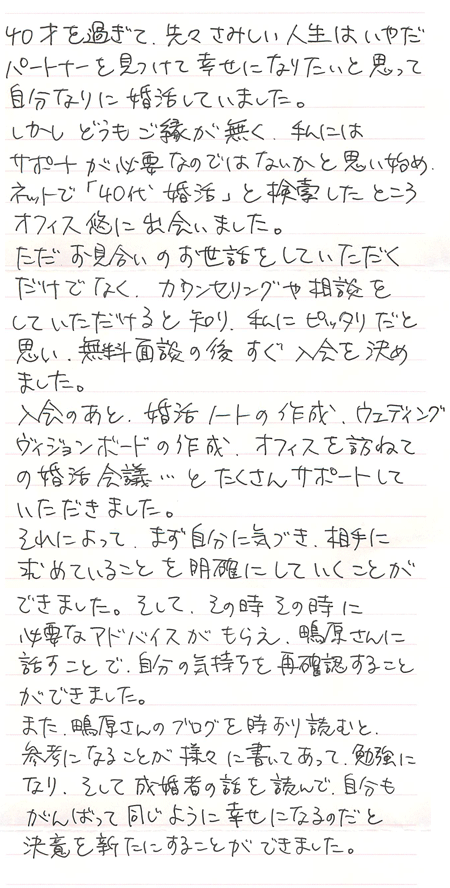 40才を過ぎて、先々さみしい人生はいやだ
パートナーを見つけて幸せになりたいと思って
自分なりに婚活していました。
しかしどうもご縁が無く、私には
サポートが必要なのではないかと思い始め、
ネットで「40代 婚活」と検索したところ
オフィス悠に出会いました。
ただお見合いのお世話をしていただく
だけでなく、カウンセリングや相談を
していただけると知り、私にピッタリだと
思い、無料面談の後すぐ入会を決め
ました。
入会のあと、婚活ノートの作成、ウェディング
ヴィジョンボードの作成、オフィスを訪ねて
の婚活会議…とたくさんサポートして
いただきました。
それによって、まず自分に気づき、相手に
求めていることを明確にしていくことが
できました。そして、その時その時に
必要なアドバイスがもらえ、鴨原さんに
話すことで、自分の気持ちを再確認すること
ができました。
また、鴨原さんのブログを時おり読むと、
参考になることが様々に書いてあって、勉強に
なり、そして成婚者の話を読んで、自分も
がんばって同じように幸せになるのだと
決意を新たにすることができました。